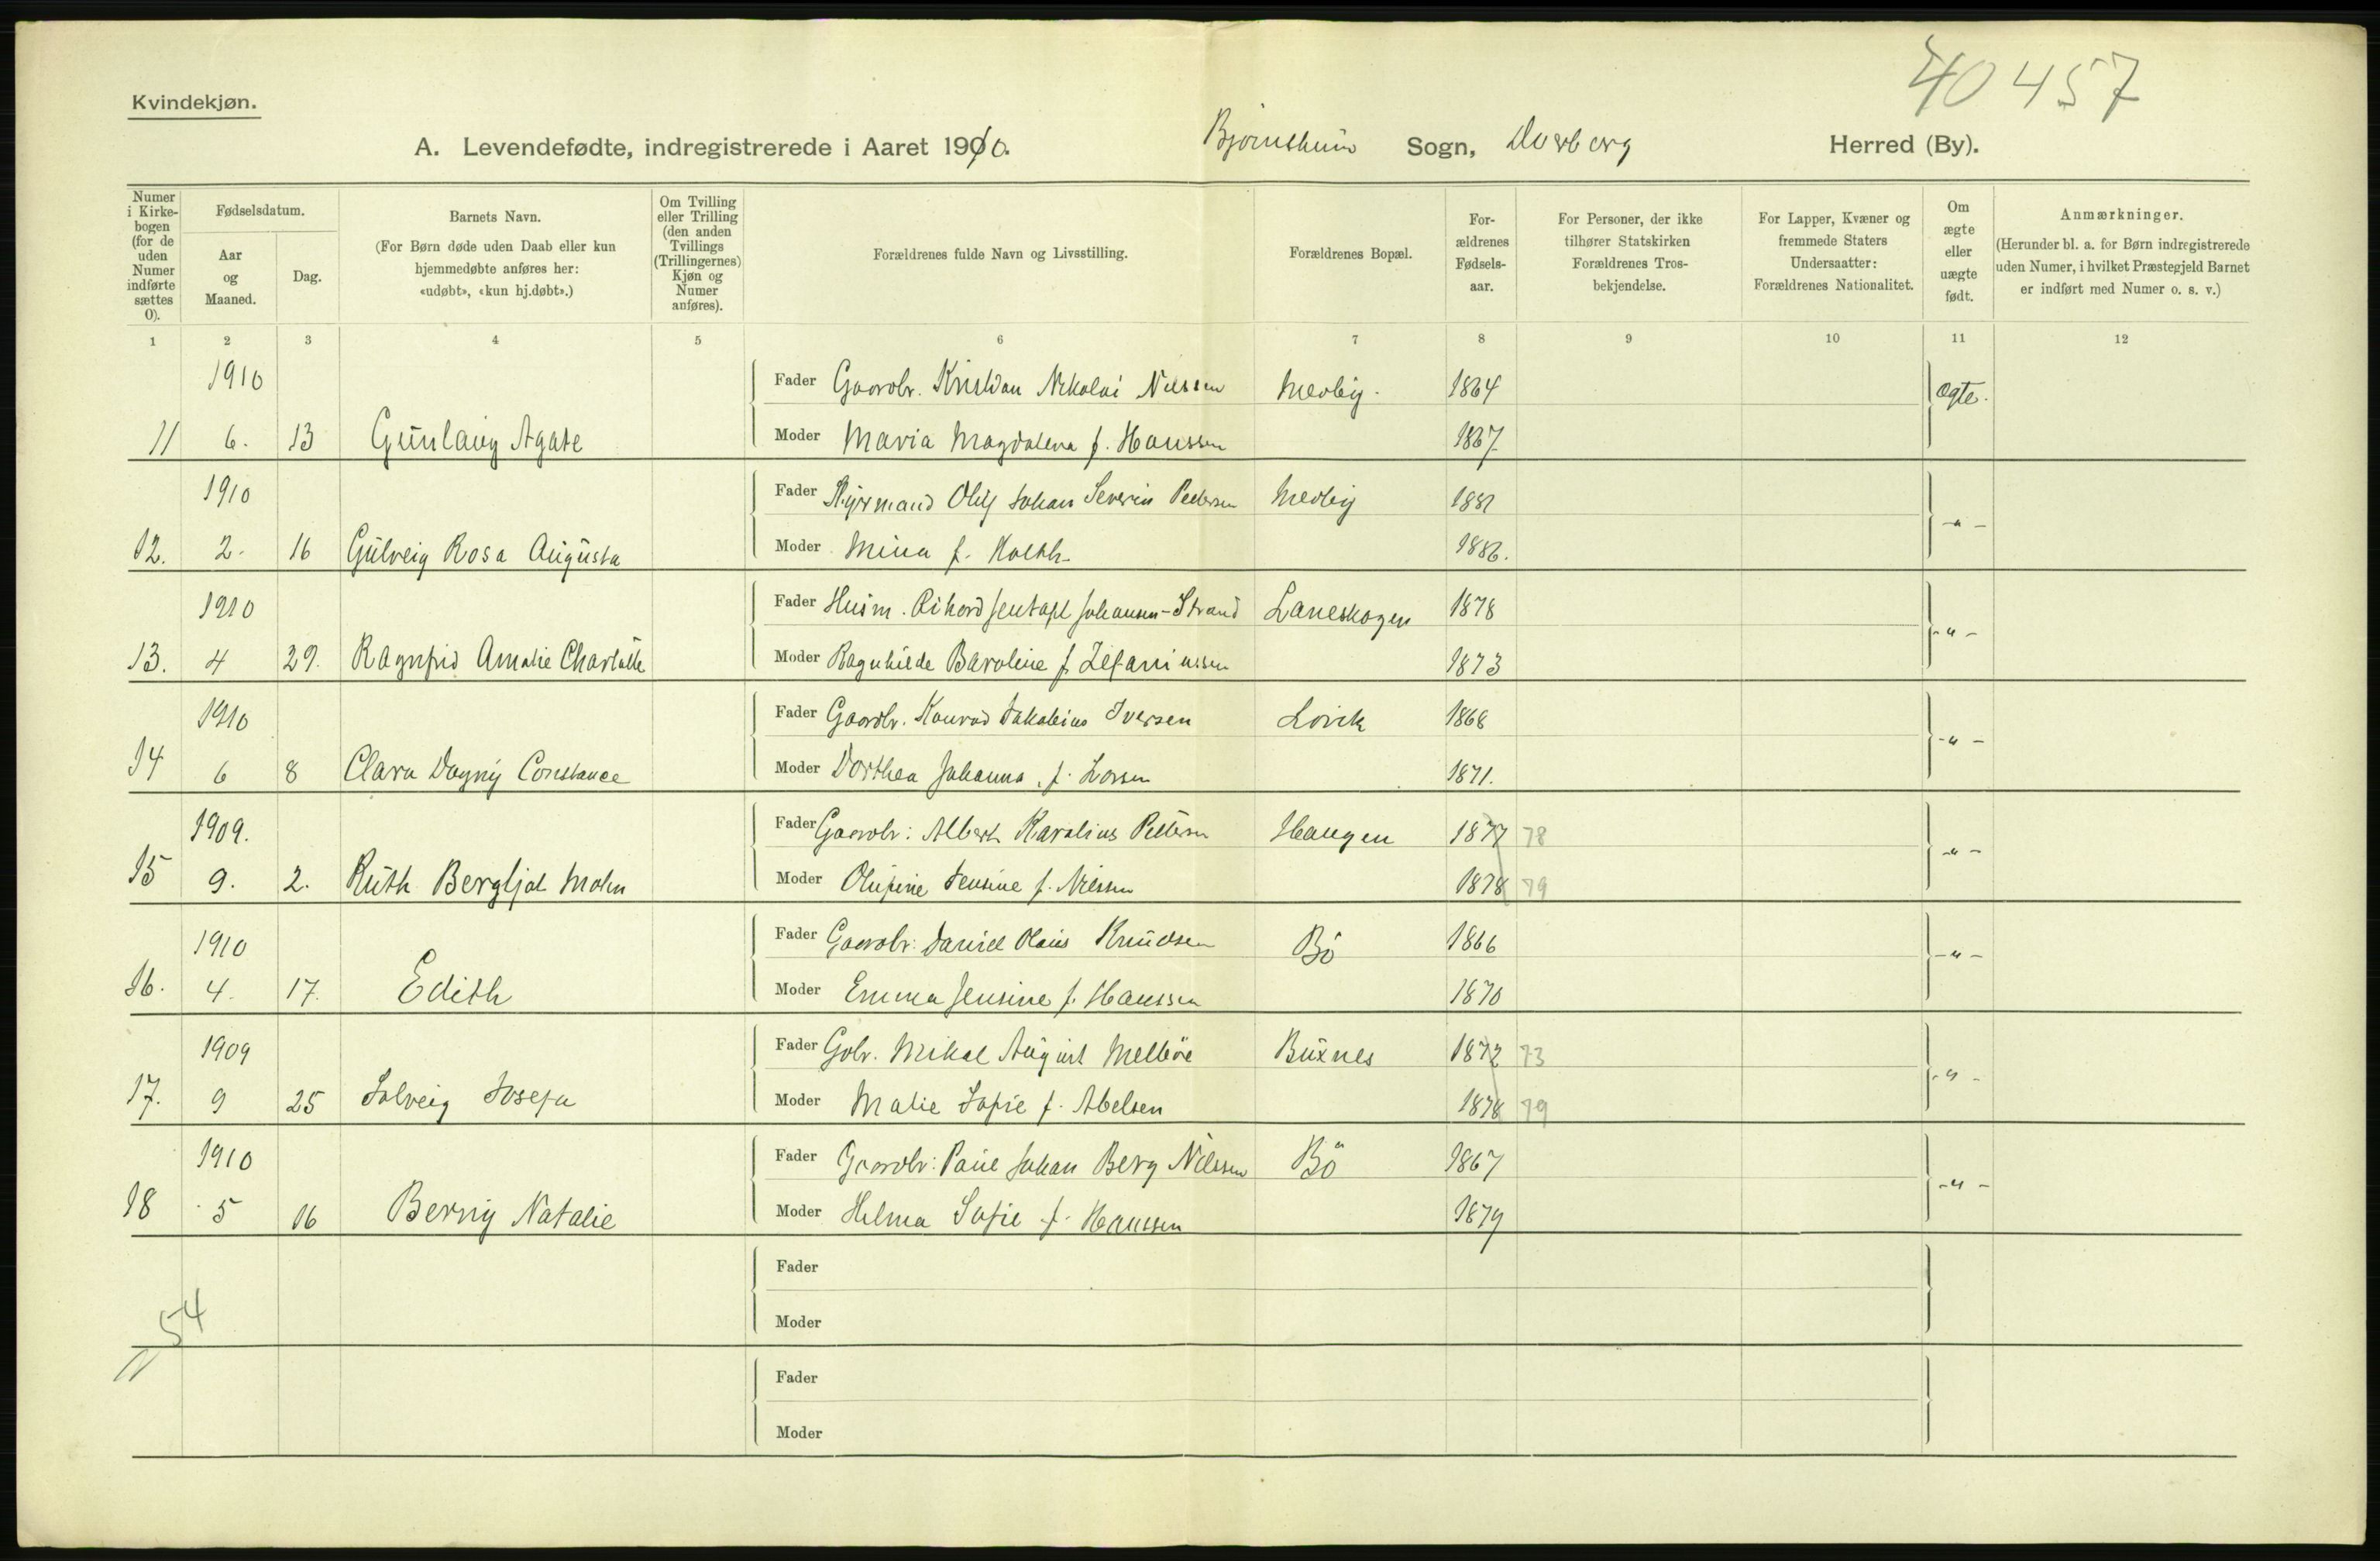 40457
Kvindekjøn.
A. Levendefødte, indregistrerede i Aaret 1910. Bjørnskinn Sogn, Dverberg Herred (By).
Numer i Kirkebogen (for de uden Numer indførte sættes 0).
Fødselsdatum.
Aar og Maaned.
Dag.
Barnets Navn.
(For Børn døde uden Daab eller kun hjemmedøbte anføres her: «udøbt», «kun hj.døbt».)
Om Tvilling eller Trilling (den anden Tvillings (Trillingernes) Kjøn og Numer anføres).
Forældrenes fulde Navn og Livsstilling.
Forældrenes Bopæl.
For-ældrenes Fødsels-aar.
For Personer, der ikke tilhører Statskirken Forældrenes Tros-bekjendelse.
For Lapper, Kvæner og fremmede Staters Undersaatter: Forældrenes Nationalitet.
Om ægte eller uægte født.
Anmærkninger.
(Herunder bl. a. for Børn indregistrerede uden Numer, i hvilket Præstegjeld Barnet er indført med Numer o. s. v.)
1 2 3 4 5 6 7 8 9 10 11 12
1910 Fader Gaardbr. Kristian Nikolai Nilssen Medby. 1864 ægte.
11 6. 13 Gunlaug Agate Moder Maria Magdalena f. Hanssen 1867
1910 Fader Styrmand Oluf Johan Severin Pedersen Medby 1881 -"-
12. 2. 16 Gulveig Rosa Augusta Moder Mina f. 1886.
1910 Fader Husm. Rikard Johansen-Strand Laneskogen 1878 -"-
13. 4 29. Ragnfrid Amalie Charlotte Moder Ragnhilde Baroline f. Zefaniassen 1873
1910 Fader Gaardbr. Konrad Jakobius Iversen Lovik 1868 -"-
14 6 8 Clara Dagny Constance Moder Dorthea Johanna f. Larsen 1871.
1909. Fader Gaardbr: Albert Karolius Pettersen Haugen 1877 78 -"-
15 9. 2. Ruth Bergljot Mohn Moder Olufine Jensine f. Nilssen 1878 79
1910 Fader Gaardbr: Daniel Olaus Knudsen Bö 1866 -"-
16. 4. 17. Edith Moder Emma Jensine f. Hanssen 1870
1909 Fader Gbr. Mikal August Melbøe Buxnes 1872 73 -"-
17. 9 25 Solveig Josefa Moder Malie Sofie f. Abelsen 1878 79
1910 Fader Gaardbr: Paul Johan Berg Nilssen Bö 1867 -"-
18 5 16 Berny Natalie Moder Helma Sofie f. Hanssen 1879
Fader
54 Moder
11
Fader
Moder